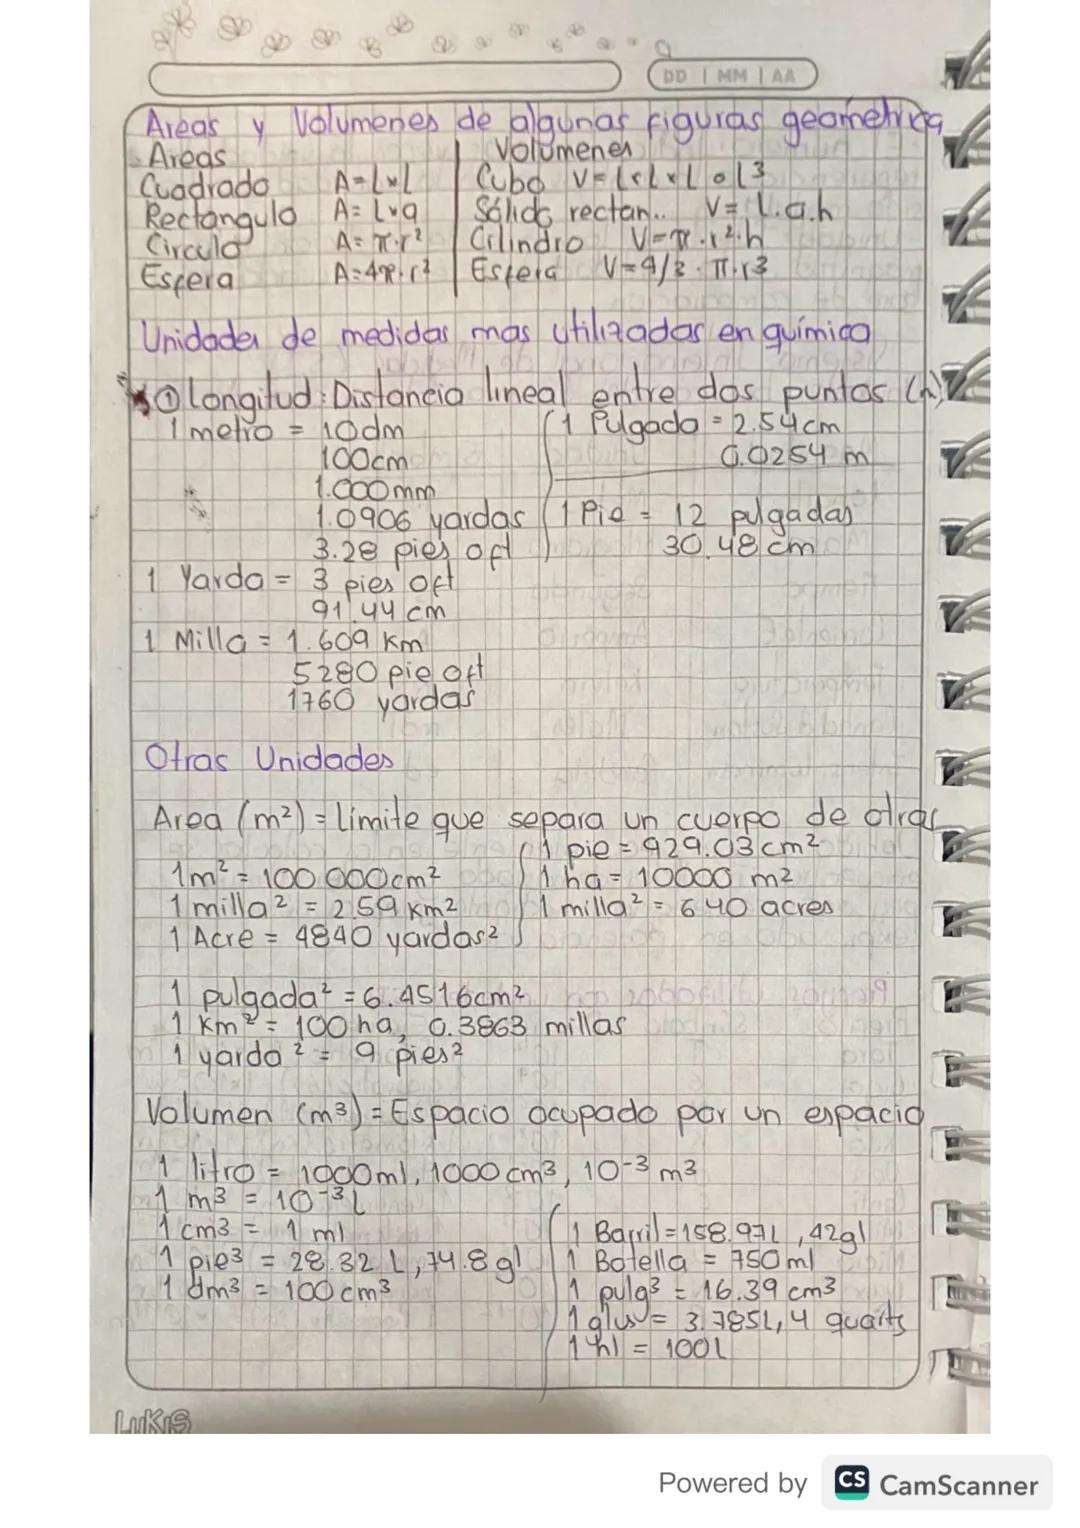 DD | MM | AA
Areas y Volumenes de algunas figuras geometrica
Areas
Volumenes
Cuadrado A=LxL
Cubo V=LxLxL o L³
Rectangulo A=Lxa
Sólido rectan.. V= L.a.h
Circulo A= π.r²
Cilindro V=π.r².h
Esfera A=4π.r²
Esfera V=4/3 . π.r³
Unidades de medidas mas utilizadas en química
① Longitud: Distancia lineal entre dos puntos (h)
1 metro = 10dm
100cm
1.000mm
1.0906 yardas
3.28 pies o ft
1 Pulgada = 2.54cm
0.0254 m
1 Pie = 12 pulgadas
30.48 cm
1 Yarda = 3 pies o ft
91.44 cm
1 Milla = 1.609 Km
5280 pie o ft
1760 yardas
Otras Unidades
Area (m²) = Límite que separa un cuerpo de otras
1m² = 100 000cm²
1 milla² = 2.59 Km²
1 Acre = 4840 yardas²
1 pie = 929.03cm²
1 ha = 10000 m²
1 milla² = 640 acres
1 pulgada² = 6.4516cm²
1 Km² = 100 ha, 0.3863 millas
1 yarda² = 9 pies²
Volumen (m³) = Espacio ocupado por un espacio
1 litro = 1000ml, 1000cm³, 10⁻³ m³
1 m³ = 10⁻³ L
1 cm³ = 1 ml
1 pie³ = 28.32 L, 74.8 gl
1 dm³ = 100cm³
1 Barril = 158.97L, 42gl
1 Botella = 750ml
1 pulg³ = 16.39 cm³
= 3.785L, 4 quarts
1 hl = 100L
LUKIS
Powered by CS CamScanner